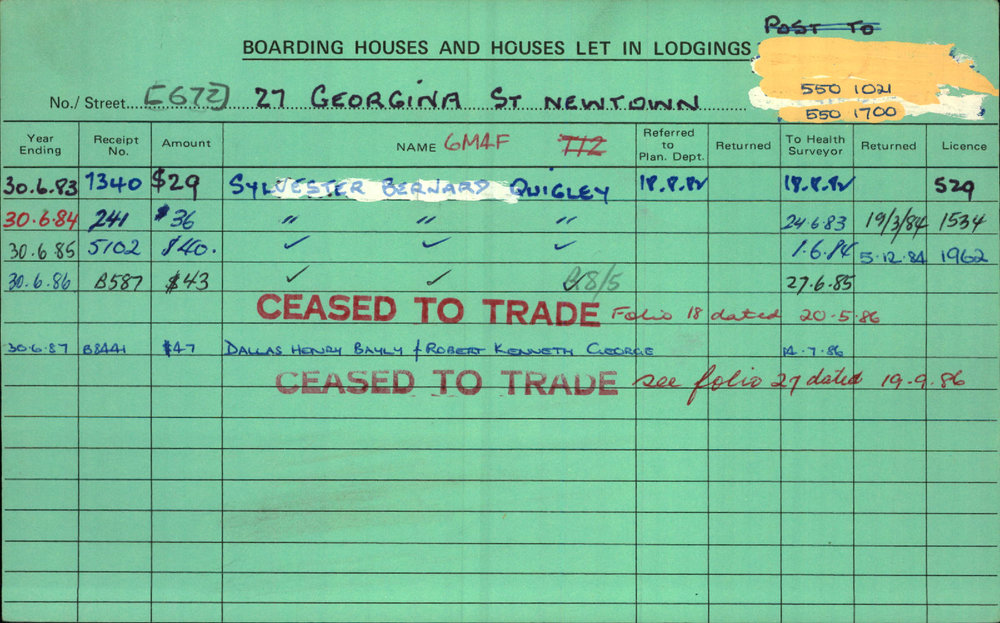 POST TO
BOARDING HOUSES AND HOUSES LET IN LODGINGS
550 1021
No./ Street [672] 27 GEORGINA ST NEWTOWN
550 1700
Year Ending Receipt No. Amount NAME 6M4F 7M2 Referred to Plan. Dept. Returned To Health Surveyor Returned Licence
30.6.83 1340 $29 SYLVESTER BERNARD QUIGLEY 18.8.82 18.8.82 529
30.6.84 241 $36 " " " 24.6.83 19/3/84 1534
30.6.85 5102 $40. ✓ ✓ ✓ 1.6.84 5.12.84 1962
30.6.86 B587 $43 ✓ ✓ 28/5 27.6.85
CEASED TO TRADE Folio 18 dated 20-5-86
30.6.87 B8441 $47 DALLAS HENRY BAYLY & ROBERT KENNETH GEORGE 14.7.86
CEASED TO TRADE see folio 27 dated 19.9.86